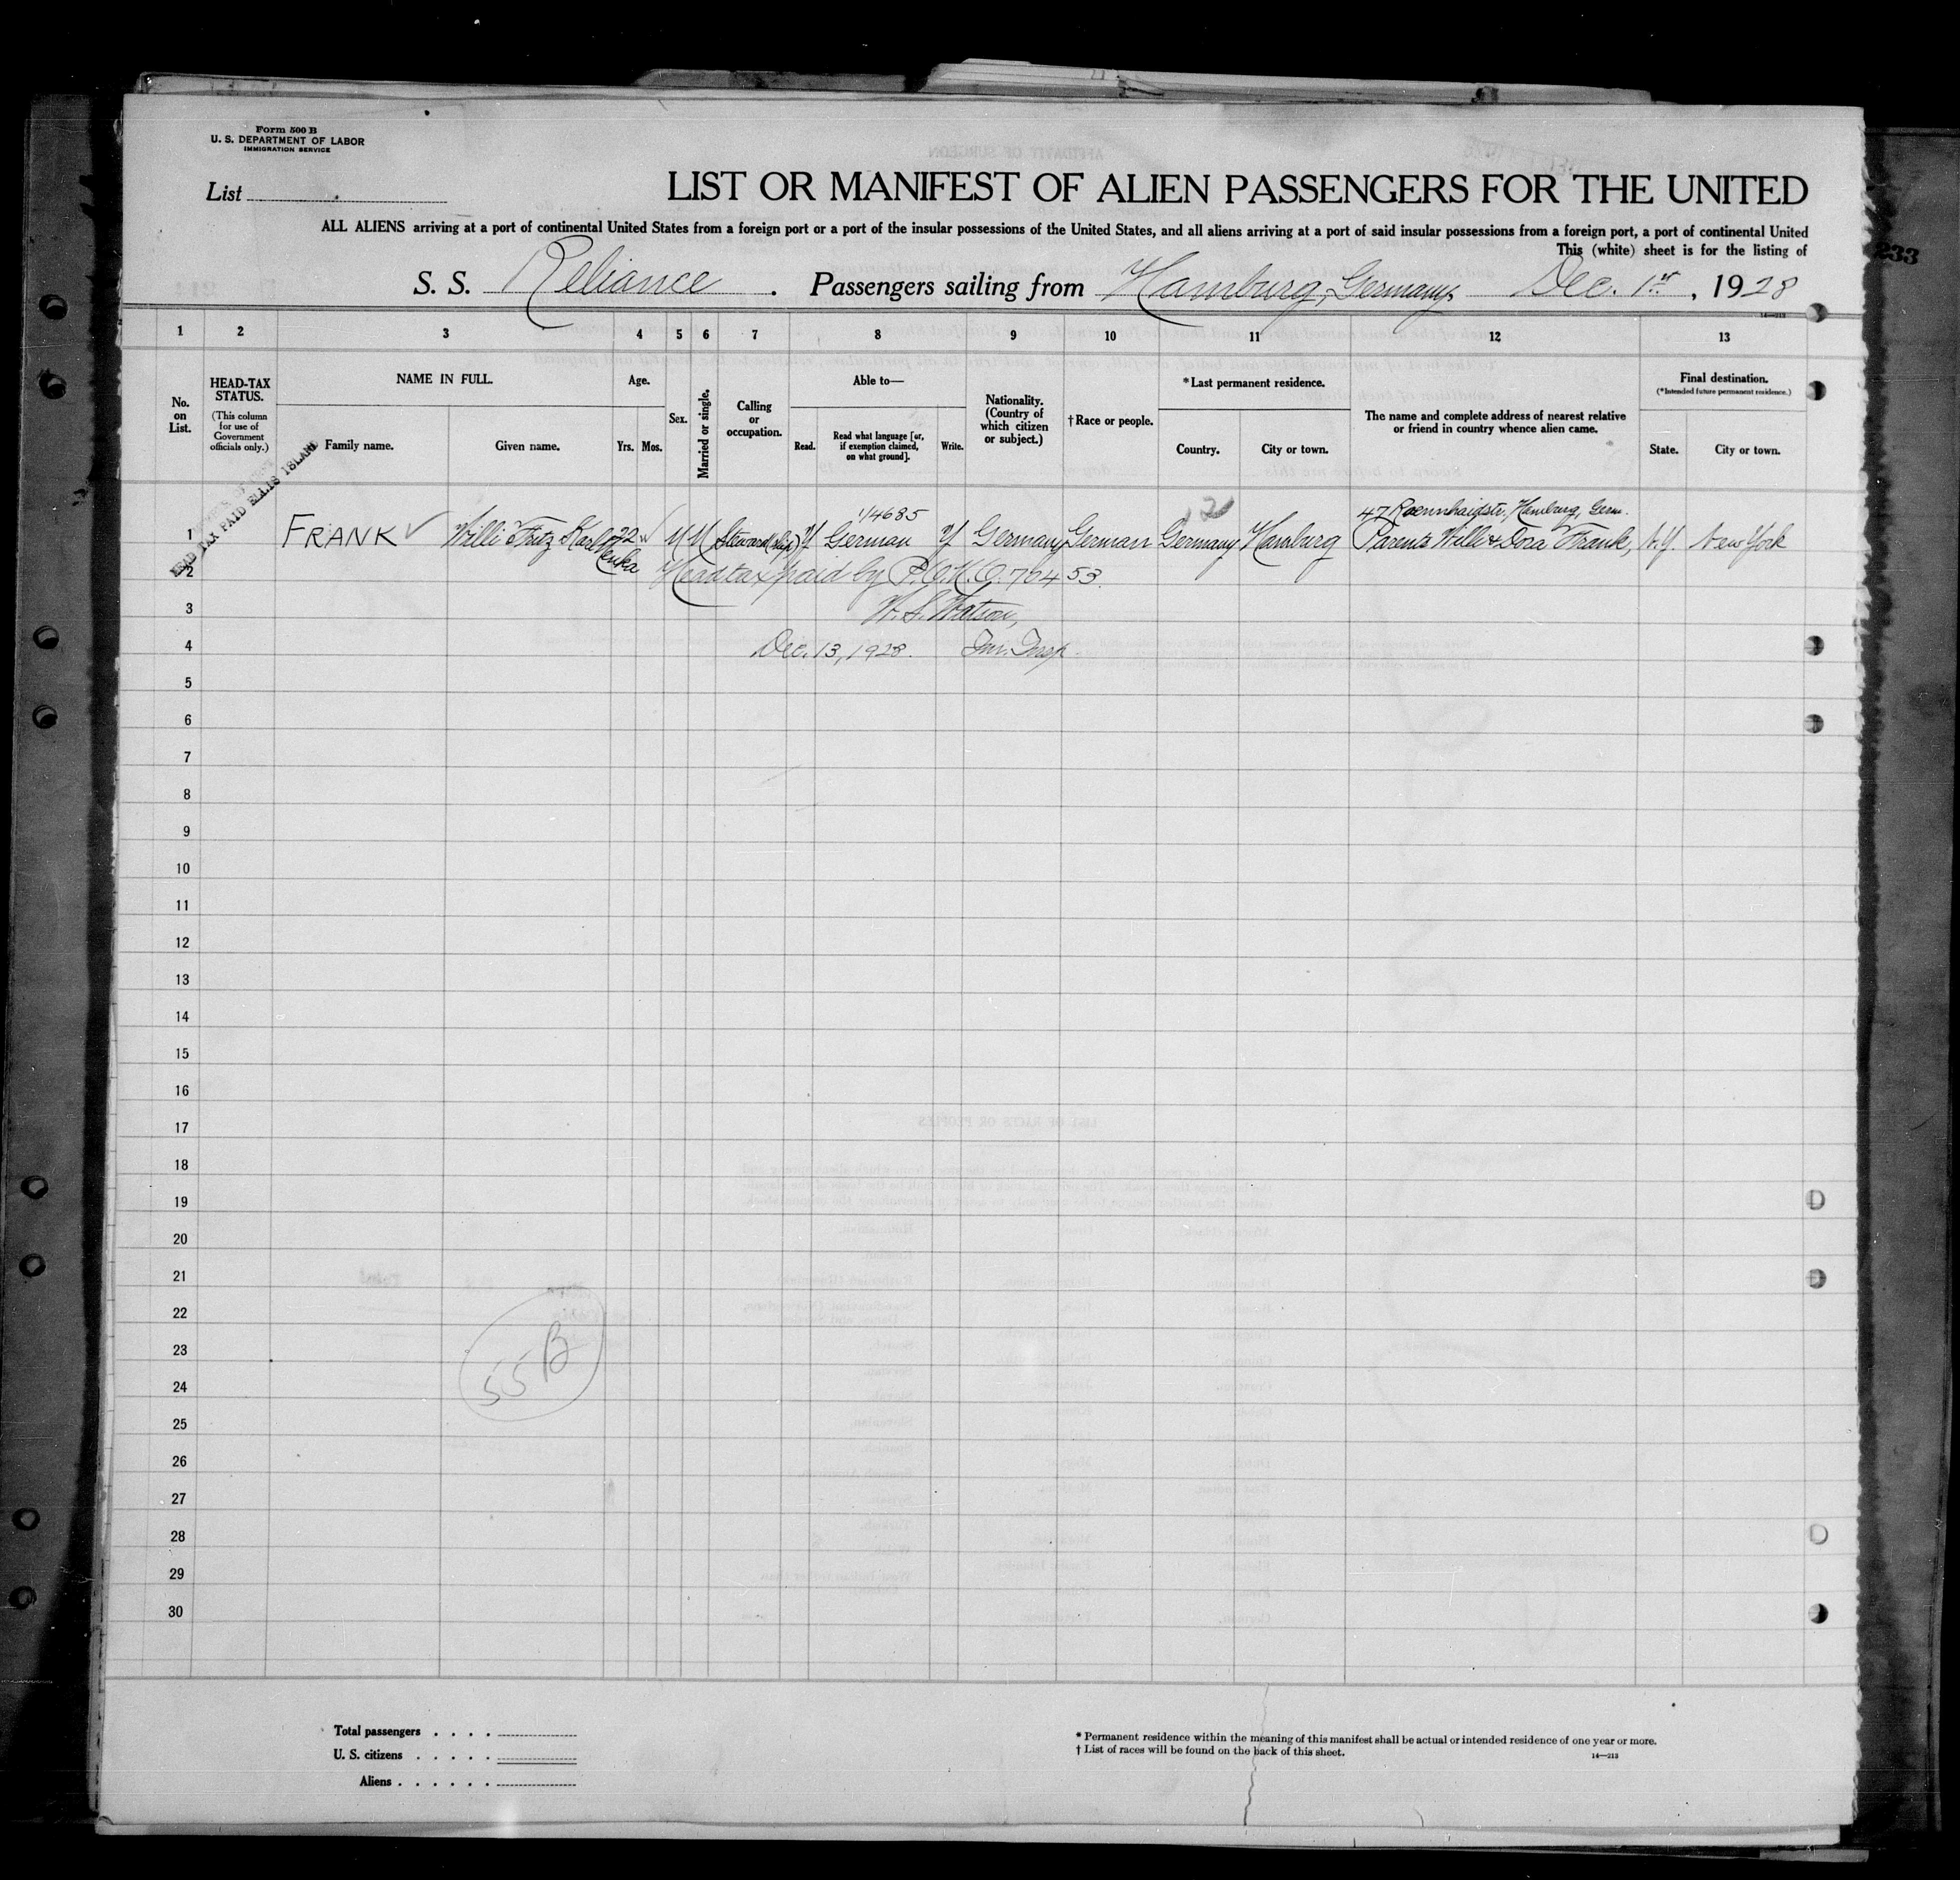 Form 500 B
U. S. DEPARTMENT OF LABOR
IMMIGRATION SERVICE
List
LIST OR MANIFEST OF ALIEN PASSENGERS FOR THE UNITED
ALL ALIENS arriving at a port of continental United States from a foreign port or a port of the insular possessions of the United States, and all aliens arriving at a port of said insular possessions from a foreign port, a port of continental United
This (white) sheet is for the listing of
233
S. S. Reliance . Passengers sailing from Hamburg, Germany, Dec. 1st , 1928
14—213
1 2 3 4 5 6 7 8 9 10 11 12 13
No. on List.
HEAD-TAX STATUS.
(This column for use of Government officials only.)
NAME IN FULL.
Family name. Given name.
Age.
Yrs. Mos.
Sex.
Married or single.
Calling or occupation.
Able to—
Read. Read what language [or, if exemption claimed, on what ground]. Write.
Nationality. (Country of which citizen or subject.)
†Race or people.
*Last permanent residence.
Country. City or town.
The name and complete address of nearest relative or friend in country whence alien came.
Final destination.
(*Intended future permanent residence.)
State. City or town.
HEAD TAX PAID ELLIS ISLAND
114685
2
47 Hamburg, Germ.
1 FRANK Willi Fritz Karl 22 M M Steward (ship) Y German Y Germany German Germany Hamburg Parents Willi & Dora Frank, N.Y. New York
2 Head tax paid by 70453.
3 W. S. Watson,
4 Dec. 13, 1928. Imm. Insp.
5
6
7
8
9
10
11
12
13
14
15
16
17
18
19
20
21
22
23
24
25
26
27
28
29
30
55 B
Total passengers . . . .
U. S. citizens . . . . .
Aliens . . . . . .
* Permanent residence within the meaning of this manifest shall be actual or intended residence of one year or more.
† List of races will be found on the back of this sheet.
14—213